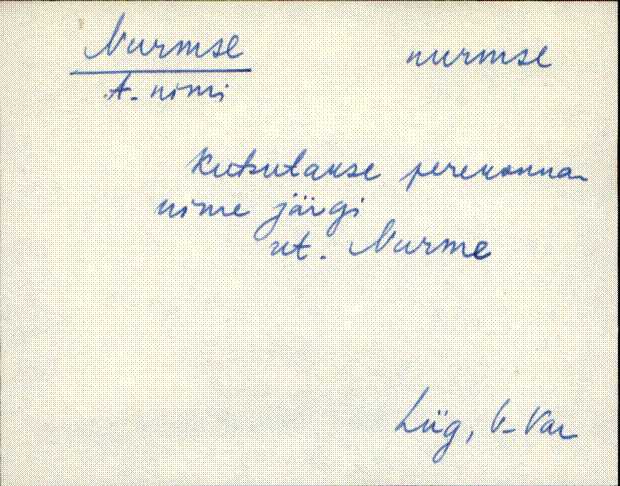 Nurmse nurmse
A. nimi
kutsutakse perekonna-
nime järgi
vt. Nurme
Lüg, V-Var